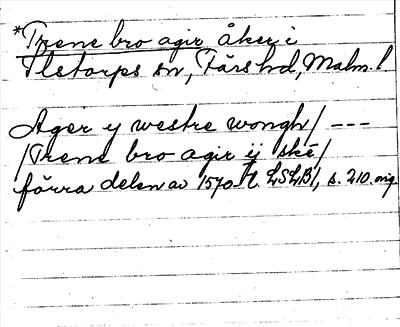 *Trene bro agir åker i
Ilstorps sn, Färs hd, Malm. l.
Ager y westre wongh / ---
/ Trene bro agir ij ske /
förra delen av 1570-t. LSLB 1, s. 210. orig.